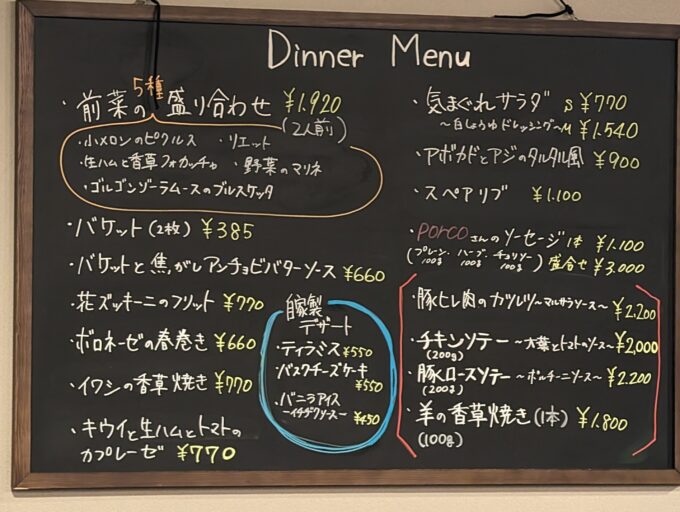 Dinner Menu
・前菜の5種盛り合わせ ¥1,920
(2人前)
・小メロンのピクルス ・リエット
・生ハムと香草フォカッチャ ・野菜のマリネ
・ゴルゴンゾーラムースのブルスケッタ
・バケット(2枚) ¥385
・バケットと焦がしアンチョビバターソース ¥660
・花ズッキーニのフリット ¥770
・ボロネーゼの春巻き ¥660
・イワシの香草焼き ¥770
・キウイと生ハムとトマトの
カプレーゼ ¥770
自家製
デザート
・ティラミス ¥550
・バスクチーズケーキ
¥550
・バニラアイス
～イチヂクソース～ ¥450
・気まぐれサラダ S ¥770
～白しょうゆドレッシング～ M ¥1.540
・アボカドとアジのタルタル風 ¥900
・スペアリブ ¥1.100
・porcoさんのソーセージ 1本 ¥1.100
(プレーン・ハーブ・チョリソー) 盛合せ ¥3,000
100g 100g 100g
・豚ヒレ肉のカツレツ～マルサラソース～ ¥2.200
・チキンソテー ～大葉とトマトのソース～ ¥2,000
(200g)
・豚ロースソテー ～ポルチーニソース～ ¥2.200
(200g)
・羊の香草焼き (1本) ¥1.800
(100g)